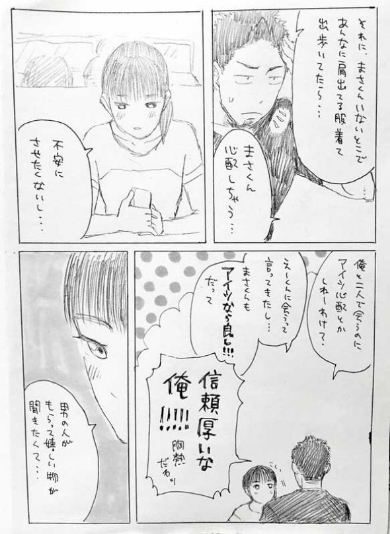 それに、まさくんいないとこで
あんなに肩出てる服着て
出歩いてたら・・・
まさくん
心配しちゃう・・・
不安に
させたくないし・・・
俺と二人で会うのに
アイツ心配とか
しねーわけ?
えーくんに会うって
言ってきたし・・・
まさくんも
アイツなら良し!!!
だって
信頼厚いな
俺!!!!!
胸熱
だわ
男の人が
もらって嬉しい物が
聞きたくて・・・